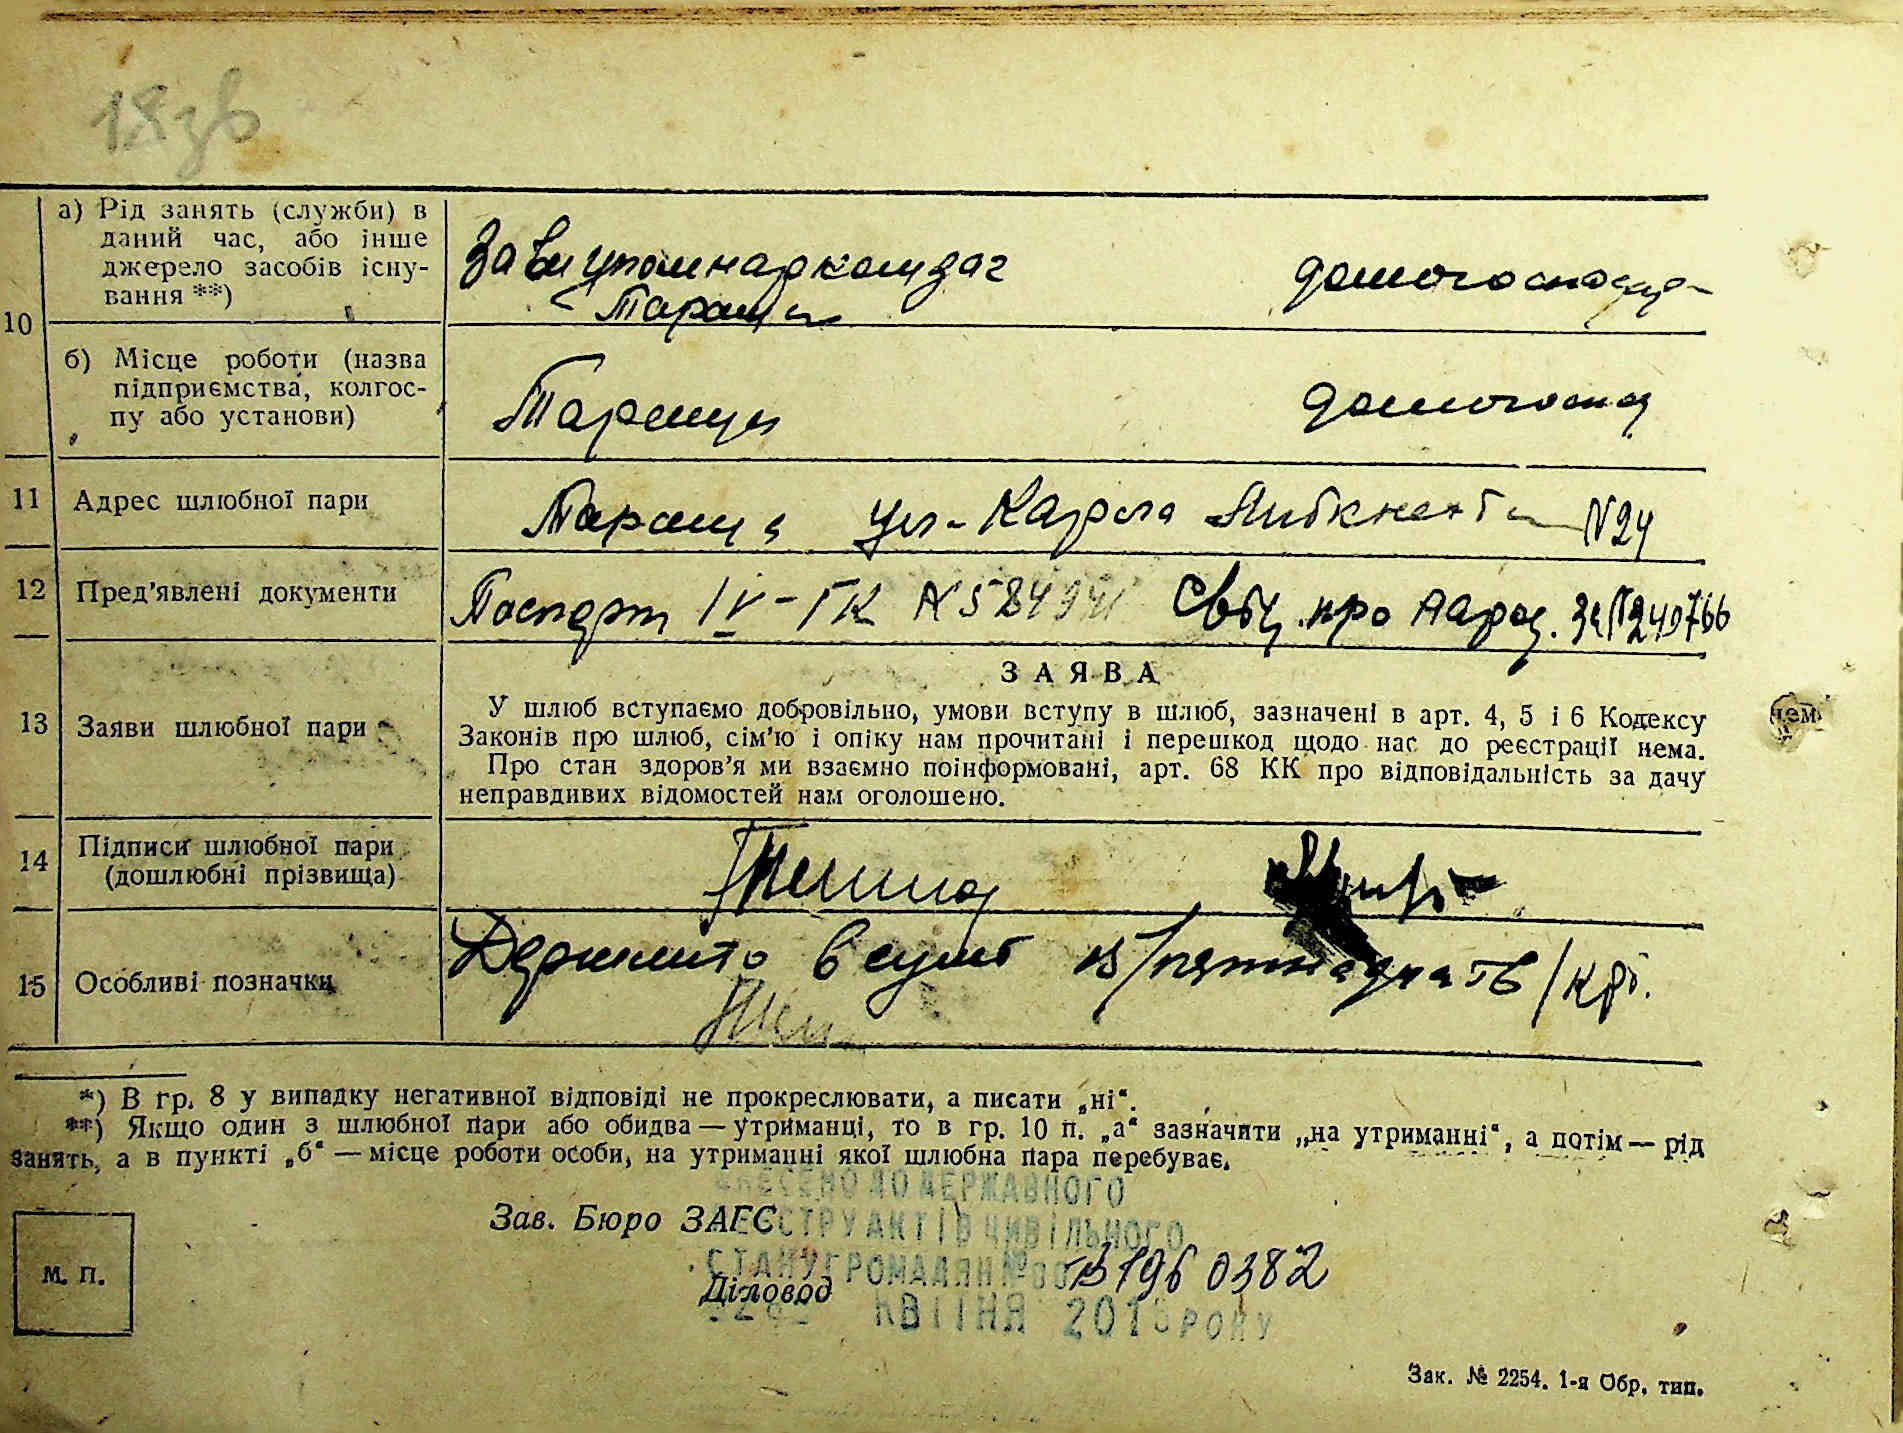 18зв
10
а) Рід занять (служби) в
даний час, або інше
джерело засобів існу-
вання **)
Зав упомнаркомзаг
Тараща
домогоспод-
б) Місце роботи (назва
підприємства, колгос-
пу або установи)
Тараща
домогоспод
11 Адрес шлюбної пари
Тараща ул- Карла Либкнехта N24
12 Пред’явлені документи
Паспорт IV-ГК № 584941 Свід. про народ. 249766
ЗАЯВА
13 Заяви шлюбної пари
У шлюб вступаємо добровільно, умови вступу в шлюб, зазначені в арт. 4, 5 і 6 Кодексу
Законів про шлюб, сім’ю і опіку нам прочитані і перешкод щодо нас до реєстрації нема.
Про стан здоров’я ми взаємно поінформовані, арт. 68 КК про відповідальність за дачу
неправдивих відомостей нам оголошено.
14 Підписи шлюбної пари
(дошлюбні прізвища)
15 Особливі позначки
Держмито в сумі 15/пятнадцать/крб.
*) В гр. 8 у випадку негативної відповіді не прокреслювати, а писати „ні“.
**) Якщо один з шлюбної пари або обидва — утриманці, то в гр. 10 п. „а“ зазначити „на утриманні“, а потім — рід
занять, а в пункті „б“ — місце роботи особи, на утриманні якої шлюбна пара перебуває.
ВНЕСЕНО ДО ДЕРЖАВНОГО
Зав. Бюро ЗАГС
РЕЄСТРУ АКТІВ ЦИВІЛЬНОГО
СТАНУ ГРОМАДЯН № 00
1960382
М. П.
Діловод
КВІТНЯ 201 РОКУ
Зак. № 2254. 1-я Обр. тип.